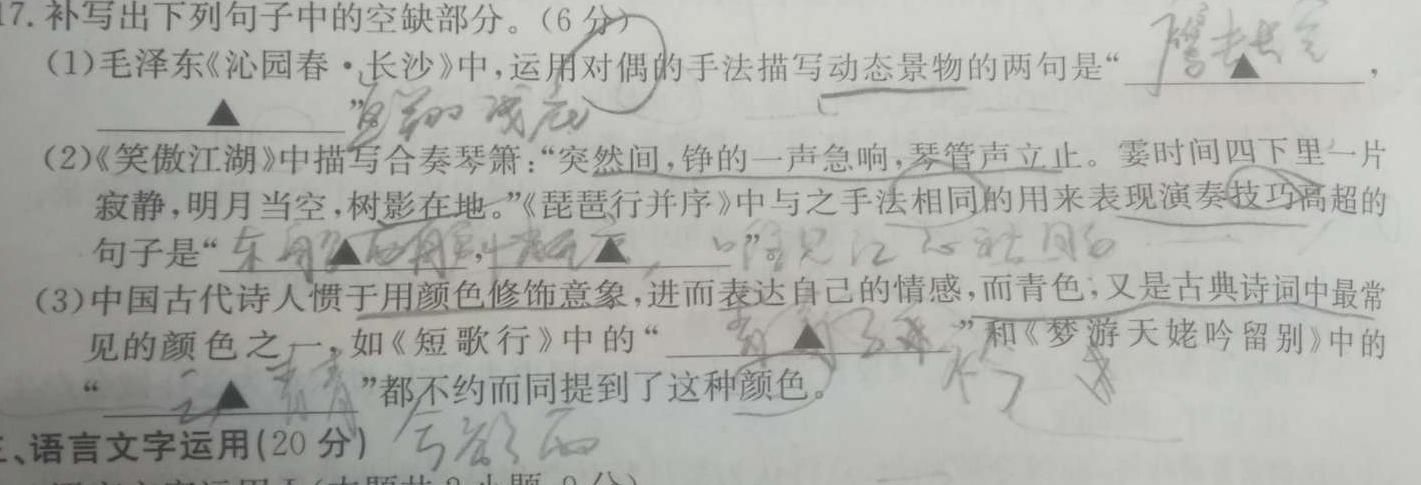 17. 补写出下列句子中的空缺部分。(6分)
(1)毛泽东《沁园春·长沙》中,运用对偶的手法描写动态景物的两句是“鹰击长空 ▲ ,
▲ ”鱼翔浅底
(2)《笑傲江湖》中描写合奏琴箫:“突然间,铮的一声急响,琴管声立止。霎时间四下里一片
寂静,明月当空,树影在地。”《琵琶行并序》中与之手法相同的用来表现演奏技巧高超的
句子是“东舟西舫悄无言 ▲ , ▲ ”唯见江心秋月白
(3)中国古代诗人惯于用颜色修饰意象,进而表达自己的情感,而青色,又是古典诗词中最常
见的颜色之一,如《短歌行》中的“青青子衿 ▲ ”和《梦游天姥吟留别》中的
“云青青 ▲ ”都不约而同提到了这种颜色。
兮欲雨
三、语言文字运用(20分)